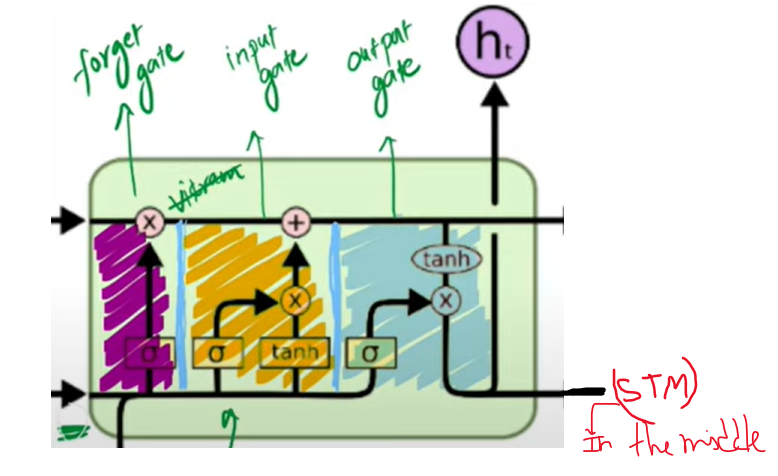 forget
gate
input
gate
output
gate
hₜ
x
+
tanh
x
x
σ
σ
tanh
σ
(STM)
In the middle